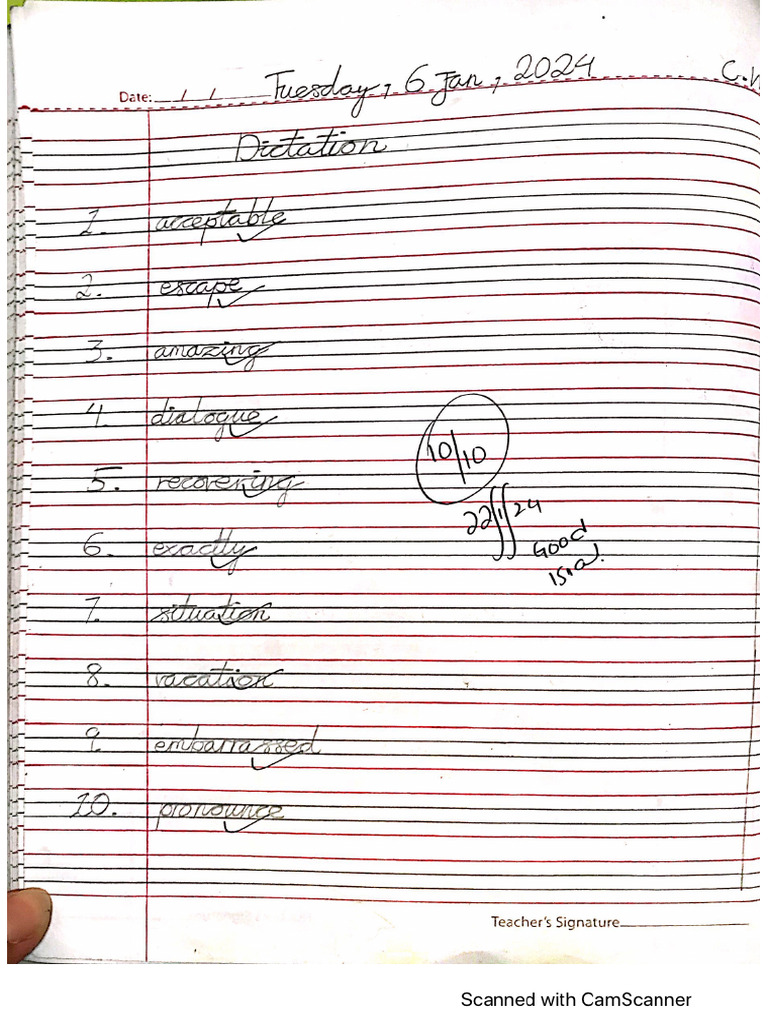 Tuesday, 6 Jan, 2024
C.W
Date: / /
Dictation
1. acceptable
2. escape
3. amazing
4. dialogue
5. recovering
10/10
22/1/24
6. exactly
Good
7. situation
8. vacation
9. embarrassed
10. pronounce
Teacher's Signature
Scanned with CamScanner